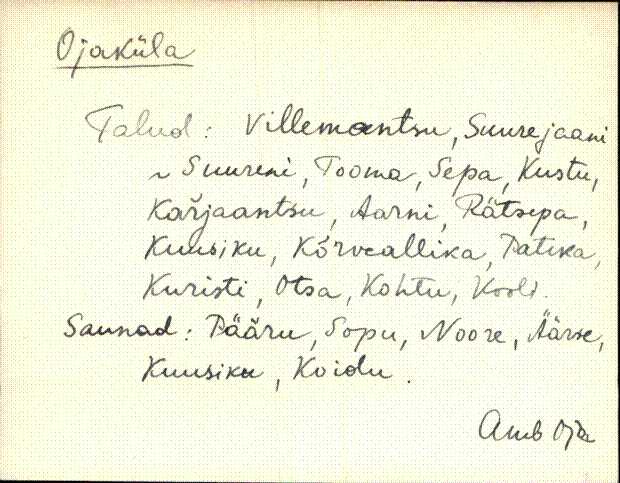 Ojaküla
Talud: Villemantsu, Suurejaani
~ Suureni, Tooma, Sepa, Kustu,
Karjaantsu, Aarni, Rätsepa,
Kuusiku, Kõrveallika, Patika,
Kuristi, Otsa, Kohtu, Kooli.
Saunad: Pääru, Sopu, Noore, Äärse,
Kuusiku, Koidu.
Amb Oja